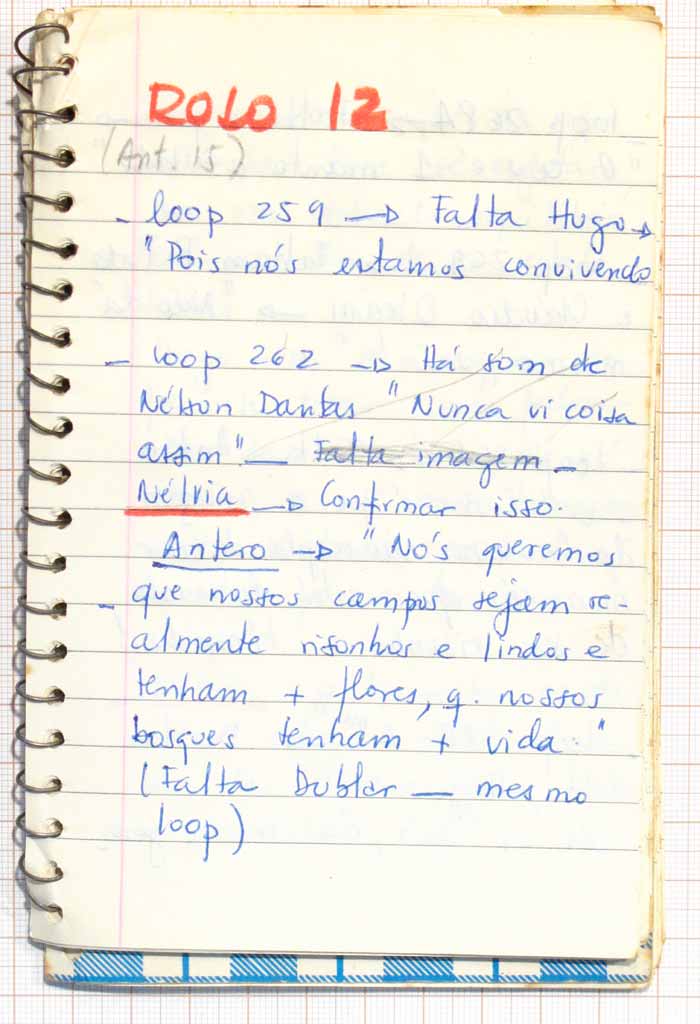 ROLO 12
(Ant. 15)
- loop 259 → Falta Hugo →
"Pois nós estamos convivendo
- loop 262 → Há som de
Nélson Dantas "Nunca vi coisa
assim". — Falta imagem —
Nélvia → Confirmar isso.
Antero → "Nós queremos
- que nossos campos sejam re-
almente risonhos e lindos e
tenham + flores, q. nossos
bosques tenham + vida."
(Falta Dublar — mesmo
loop)